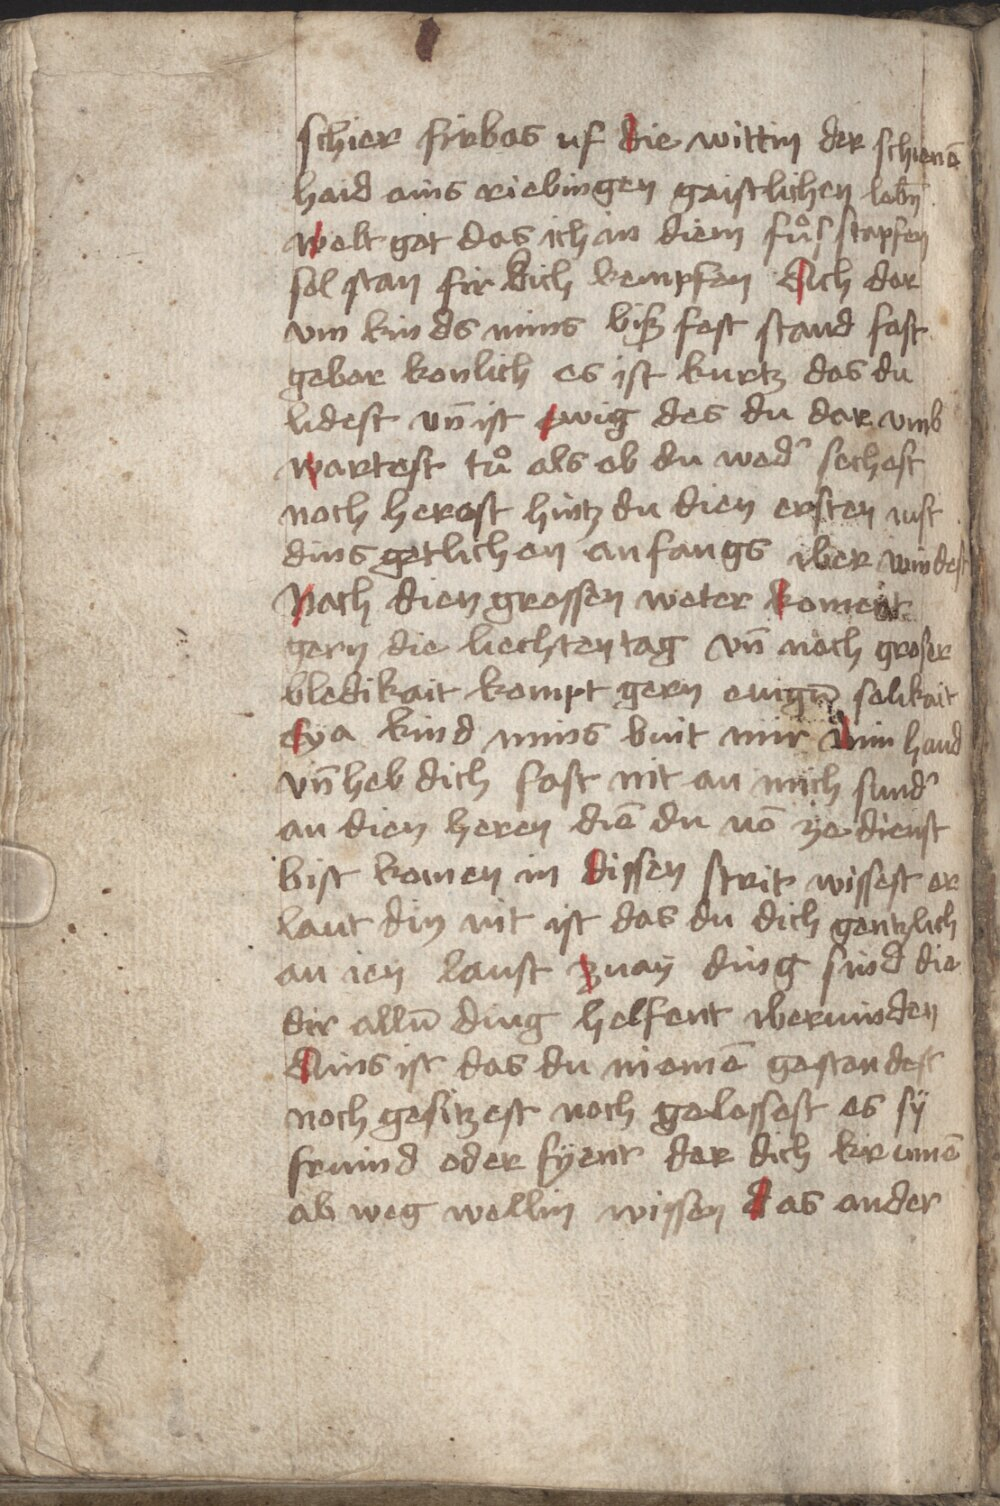 schier fürbas uf die wittin der schienē
haid ains riebingen gaistlichen lebn̄
welt got das ich in diem fůsstapfen
sol stan fir dich kempfen Ach dar
vm kinds mins biß fest stand fest
gebar konlich es ist kurtz das du
lidest vn̄ ist ewig des du dar vmb
wartest tů als ob du wed' sechest
noch herost hintz du dien ersten rust
dins getlichen anfangs iber windest
Nach dien grossen weter koment
gern die liechten tag vn̄ noch groser
bledikait kompt gern ewigū selikait
Eya kind mins buit mir din hand
vn̄ heb dich fast nit an mich sund'
an dien heren diē du nō ze dienst
bist komen in dissen strit wissest er
laut din nit ist das du dich gentzlich
an ien laust zway ding sind die
dir allū ding helfent iberwinden
Ains ist das du niemē gestandest
noch gesitzest noch gelossest es sÿ
fruind oder fyent der dich kir
ab weg wellin wissen das ander